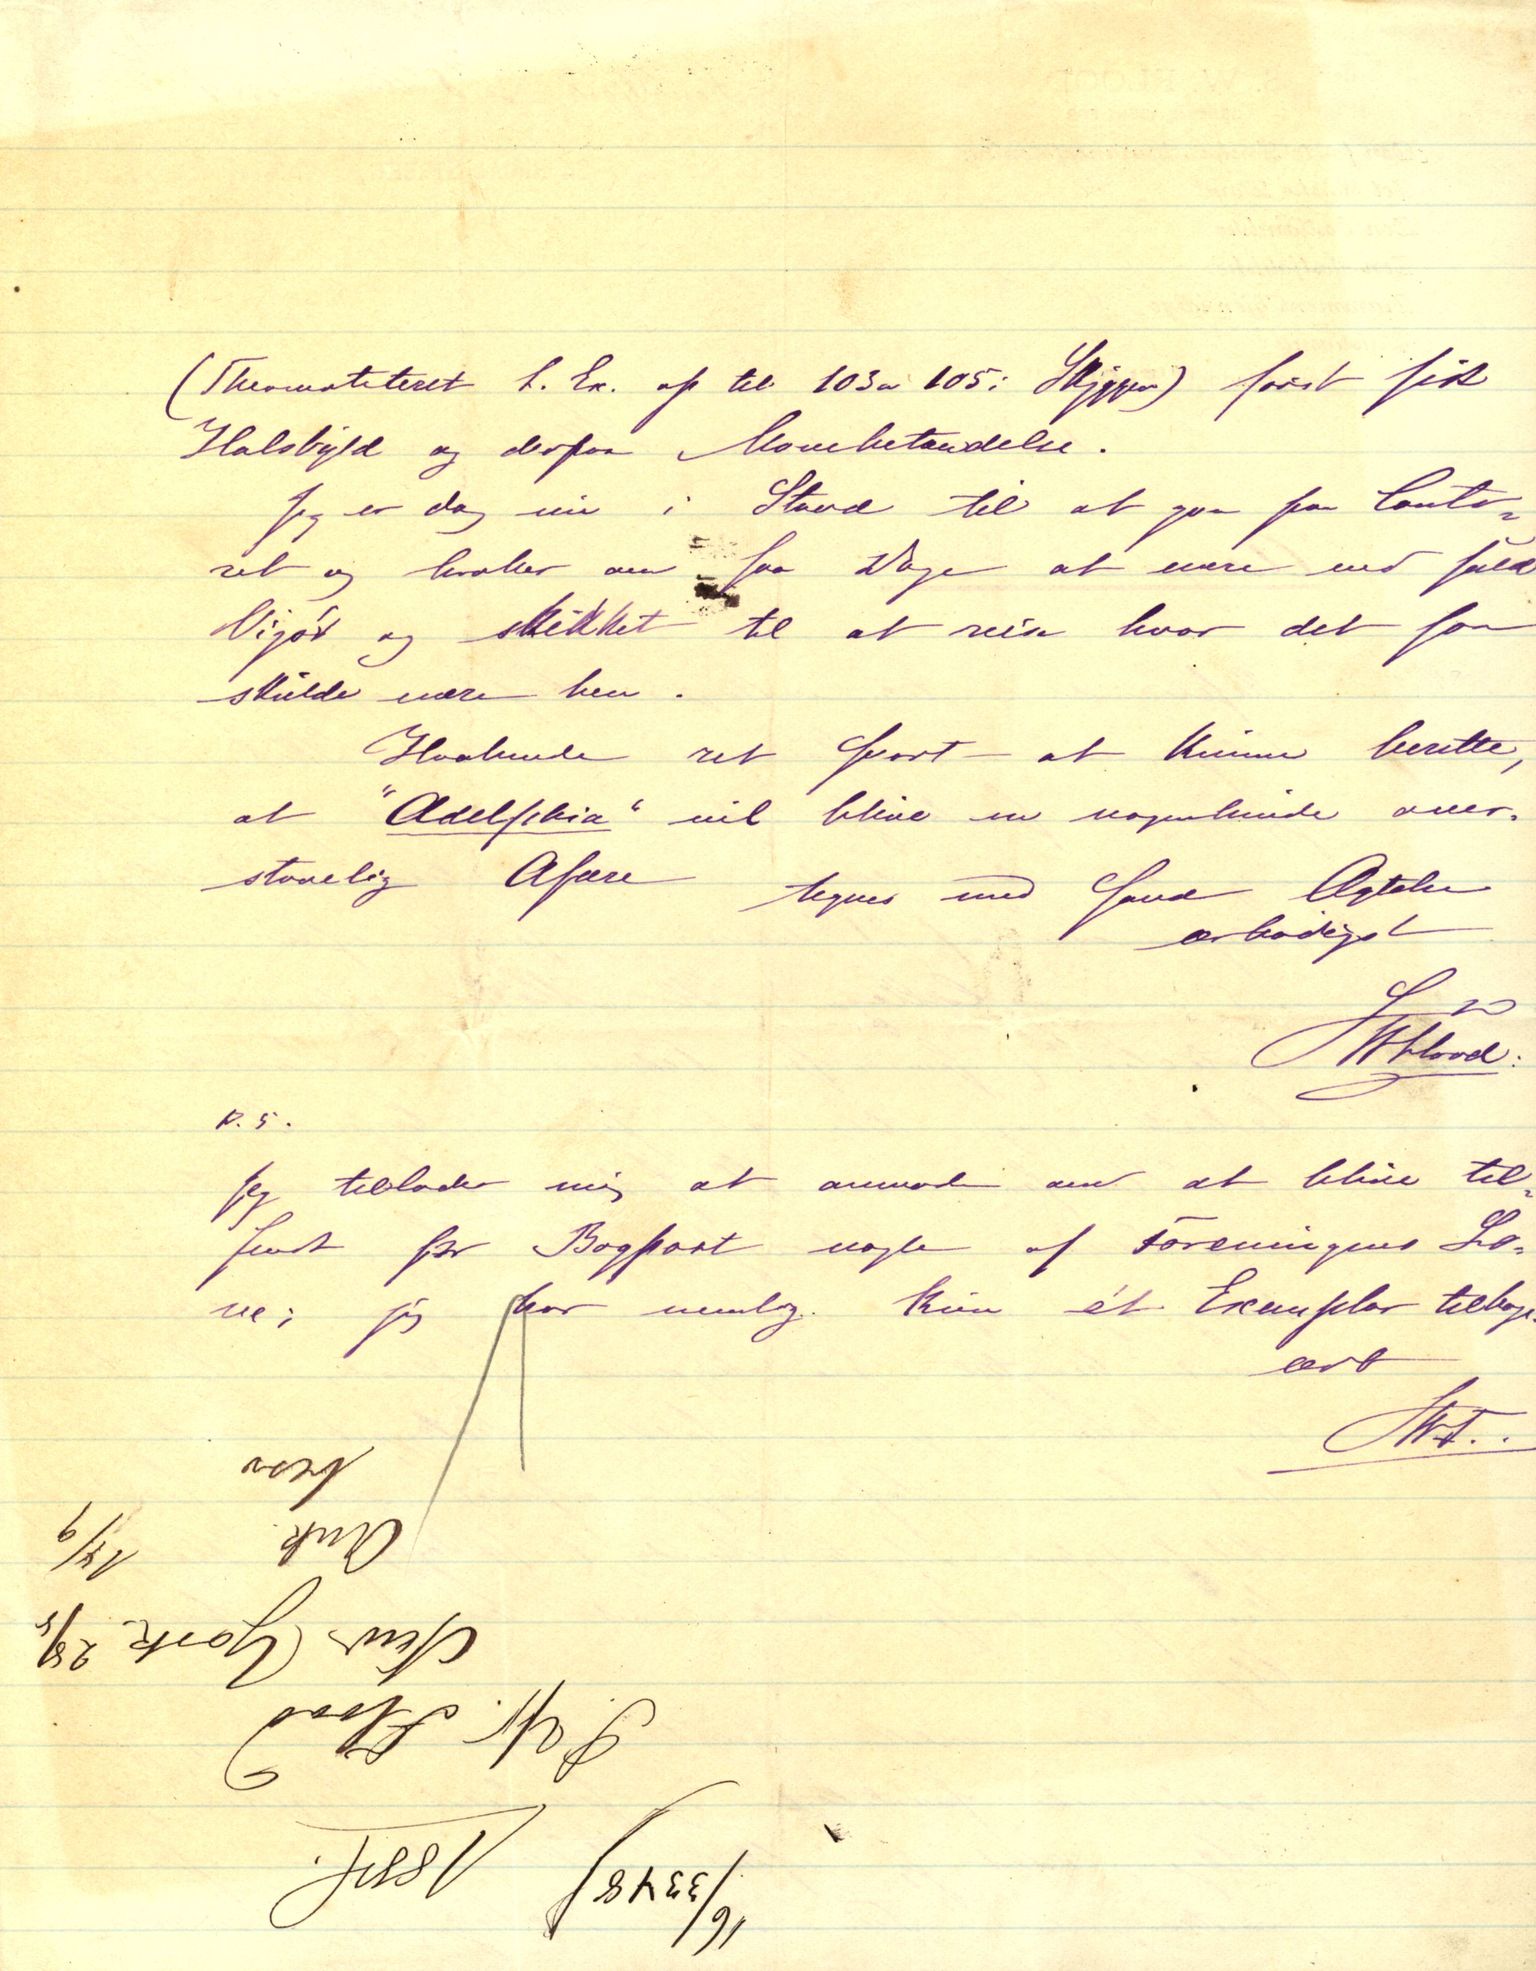 (Thermometeret f. Ex. op til 103 a 105 i Skyggen) først fik
Halsbyld og derpaa Mavebetændelse.
Jeg er dog nu i Stand til at gaa paa Conto=
ret og haaber om faa Dage at være ved fuld
Vigør og skikket til at reise hvor det saa
skulde være hen.
Haabende ret snart at kunne berette,
at "Adelphia" vil blive en nogenlunde over-
stavelig Afære
tegner med sand Agtelse
ærbødigst
S W Flood.
P. S.
Jeg tillader mig at anmode om at blive til=
sendt pr Bogpost nogle af Foreningens Lo=
ve; jeg har nemlig kun ét Exemplar tilbage.
ærb
SWF.
16/3348
1885.
S. W. Flood
New York 28/8
Ank. 14/9
besv